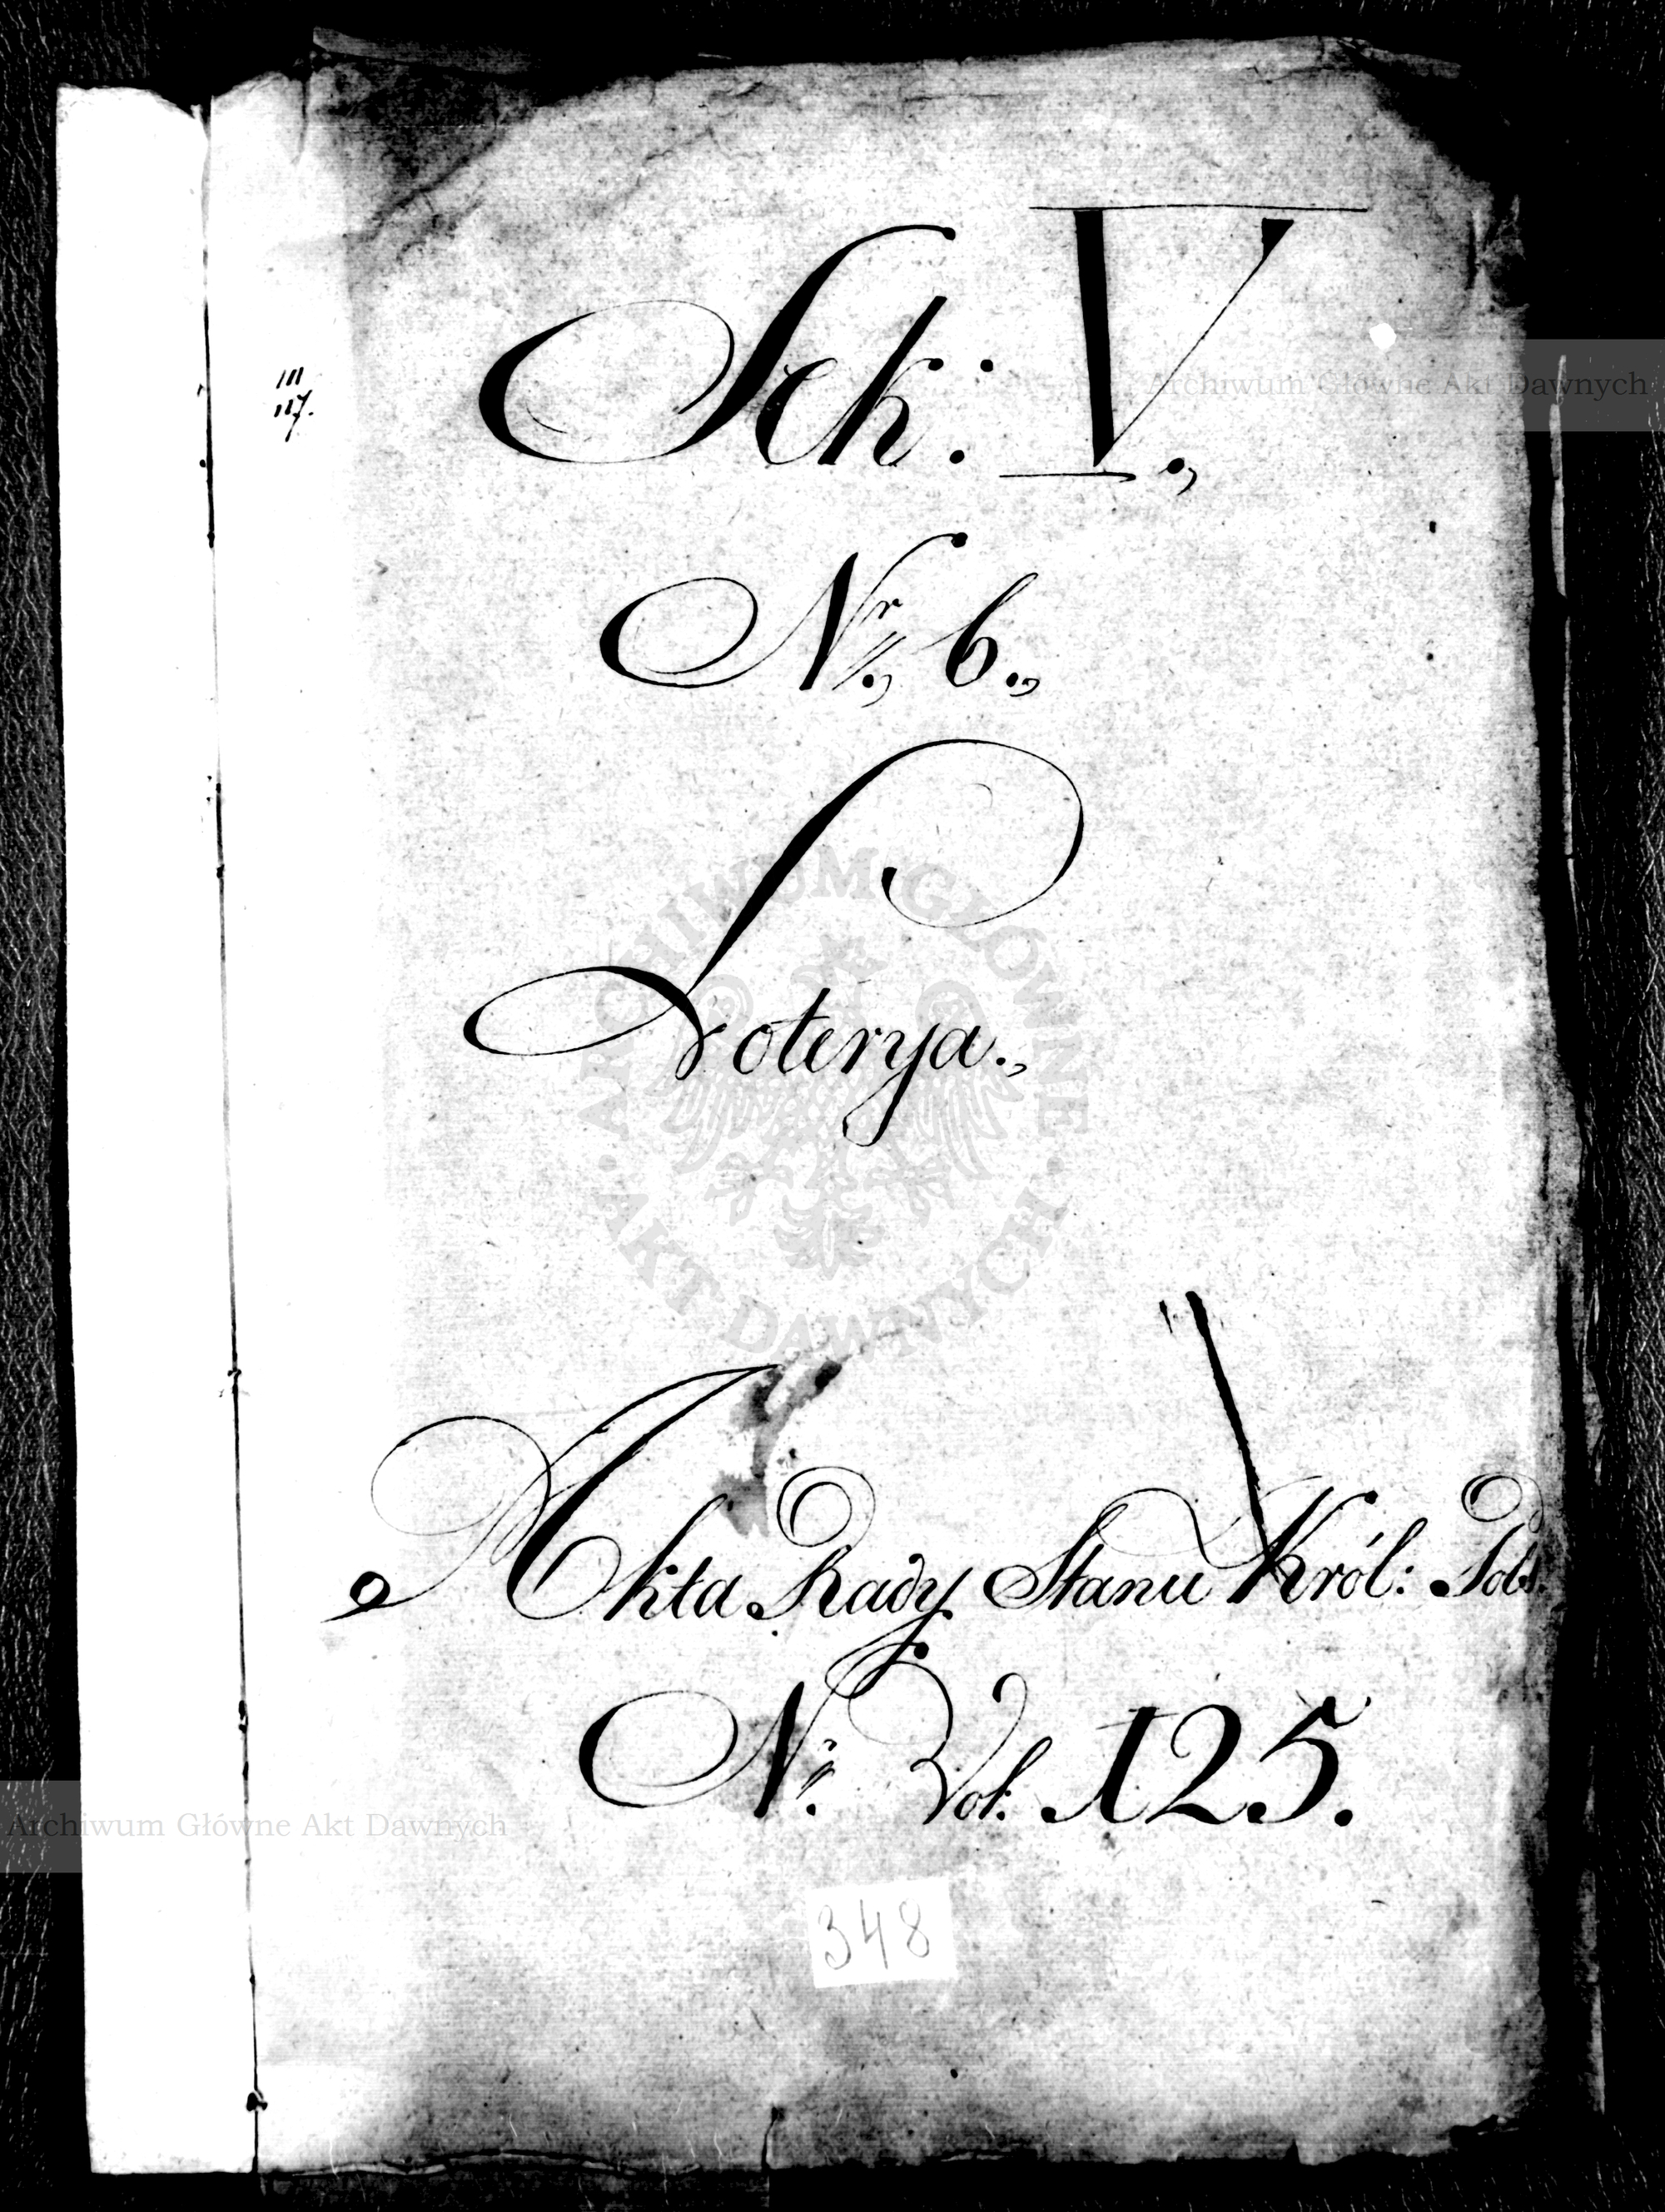 Sek: V.,
111
117.
Nr., 6.,
Loterya.,
Akta Rady Stanu Król: Pols.
Nr. Vol: 125.
348
Archiwum Główne Akt Dawnych
ARCHIWUM GŁÓWNE
AKT DAWNYCH
Archiwum Główne Akt Dawnych